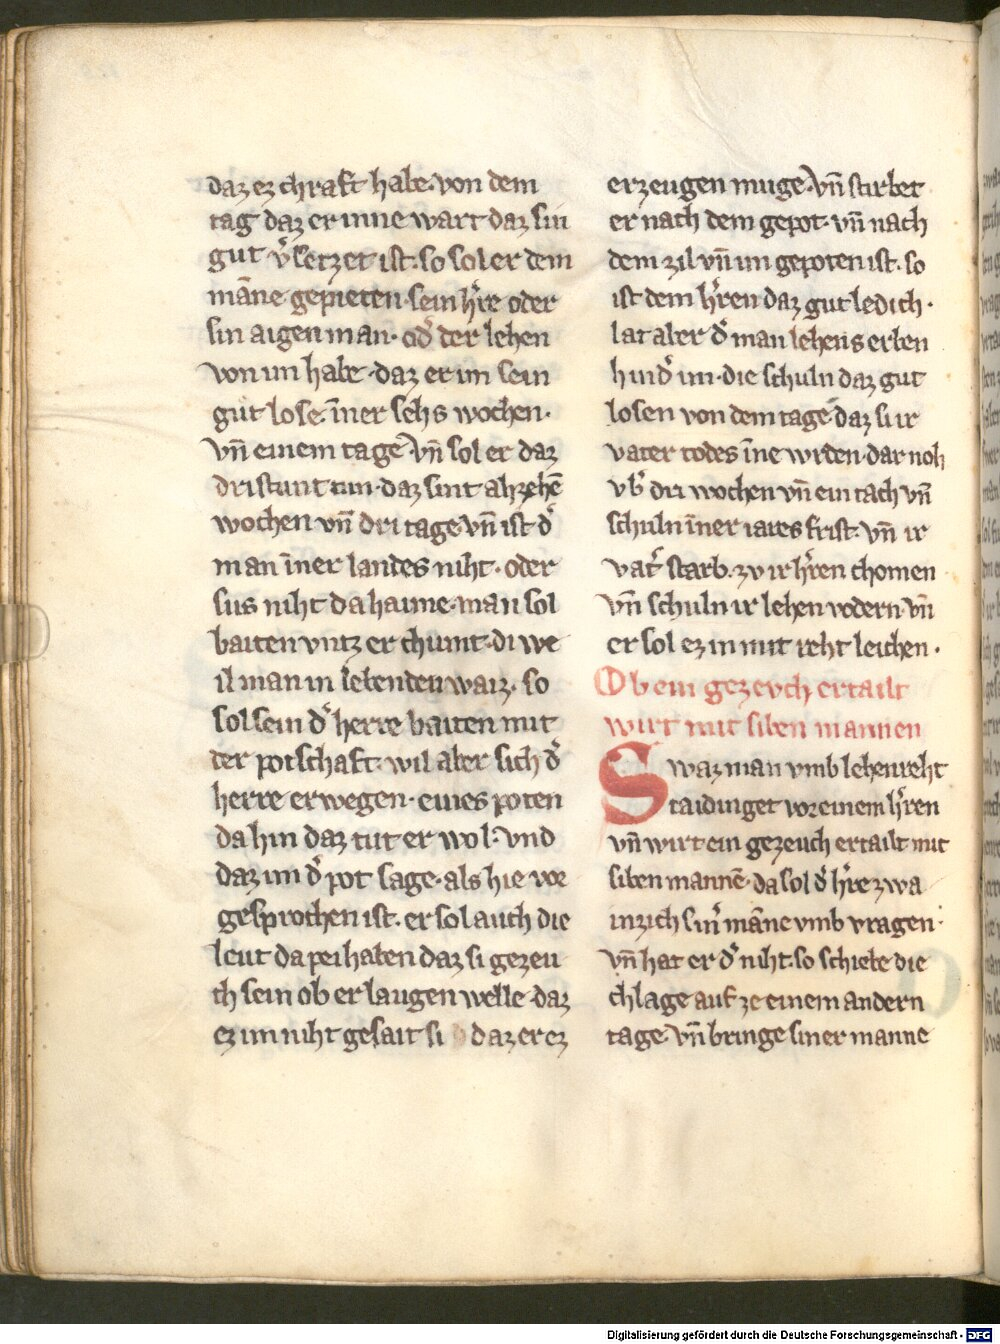 daz ez chraft habe. von dem
tag daz er inne wart daz sin
gut v͛setzet ist. so sol er dem
māne gepieten. sein h͛re oder
sin aigen man. od͛ der lehen
von im habe. daz er im sein
gut lose. īner sehs wochen.
vn̄ einem tage. vn̄ sol er daz
dristunt tun. daz sint ahzehē
wochen vn̄ dri tage. vn̄ ist d͛
man īner landes niht. oder
sus niht da haime. man sol
baiten vntz er chumt. di we
il man in lebenden waiz. so
sol sein d͛ herre baiten mit
der potschaft. wil aber sich d͛
herre erwegen. eines poten
da hin daz tut er wol. vnd
daz im d͛ pot sage. als hie vor
gesprochen ist. er sol auch die
leut da pei haben daz si gezeu
ch sein ob er laugen welle. daz
ez im niht gesait si daz er ez
erzeugen muge. vn̄ stirbet
er nach dem gepot. vn̄ nach
dem zil vn̄ im gepoten ist. so
ist dem h͛ren daz gut ledich.
lat aber d͛ man lehens erben
hind͛ im. die schuln daz gut
losen von dem tage daz si ir
vater todes īne wrden. dar noh
vb͛ dri wochen vn̄ ein tach vn̄
schuln īner iares frist. vn̄ ir
vat͛ starb. zv ir h͛ren chomen
vn̄ schuln ir lehen vodern. vn̄
er sol ez in mit reht leichen.
Ob ein gezevch ertailt
wirt mit siben mannen
Swaz man vmb lehenreht
taidinget vor einem h͛ren
vn̄ wirt ein gezeuch ertailt mit
siben mannē. da sol d͛ h͛re zwa
inzich sin͛ māne vmb vragen.
vn̄ hat er d͛ niht. so schiebe die
chlage auf ze einem andern
tage. vn̄ bringe siner manne
Digitalisierung gefördert durch die Deutsche Forschungsgemeinschaft - DFG